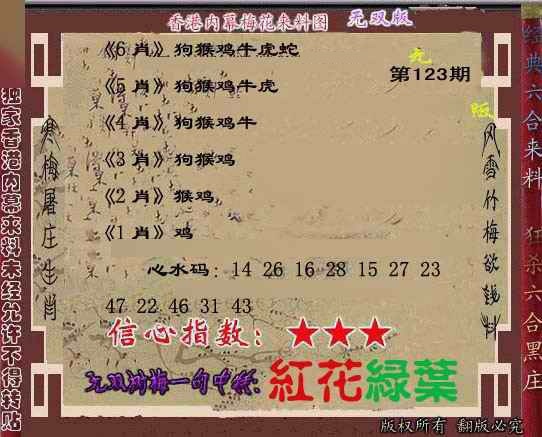 香港内幕梅花来料图 无双版
《6 肖》狗猴鸡牛虎蛇
第123期
《5 肖》狗猴鸡牛虎
《4 肖》狗猴鸡牛
《3 肖》狗猴鸡
《2 肖》猴鸡
《1 肖》鸡
心水码：14 26 16 28 15 27 23
47 22 46 31 43
信心指数：★★★
紅花綠葉
独家香港内幕来料未经允许不得转贴
寒梅屠庄生肖
风雪竹梅欲钱料
经典六合来料
狂杀六合黑庄
版权所有 翻版必究